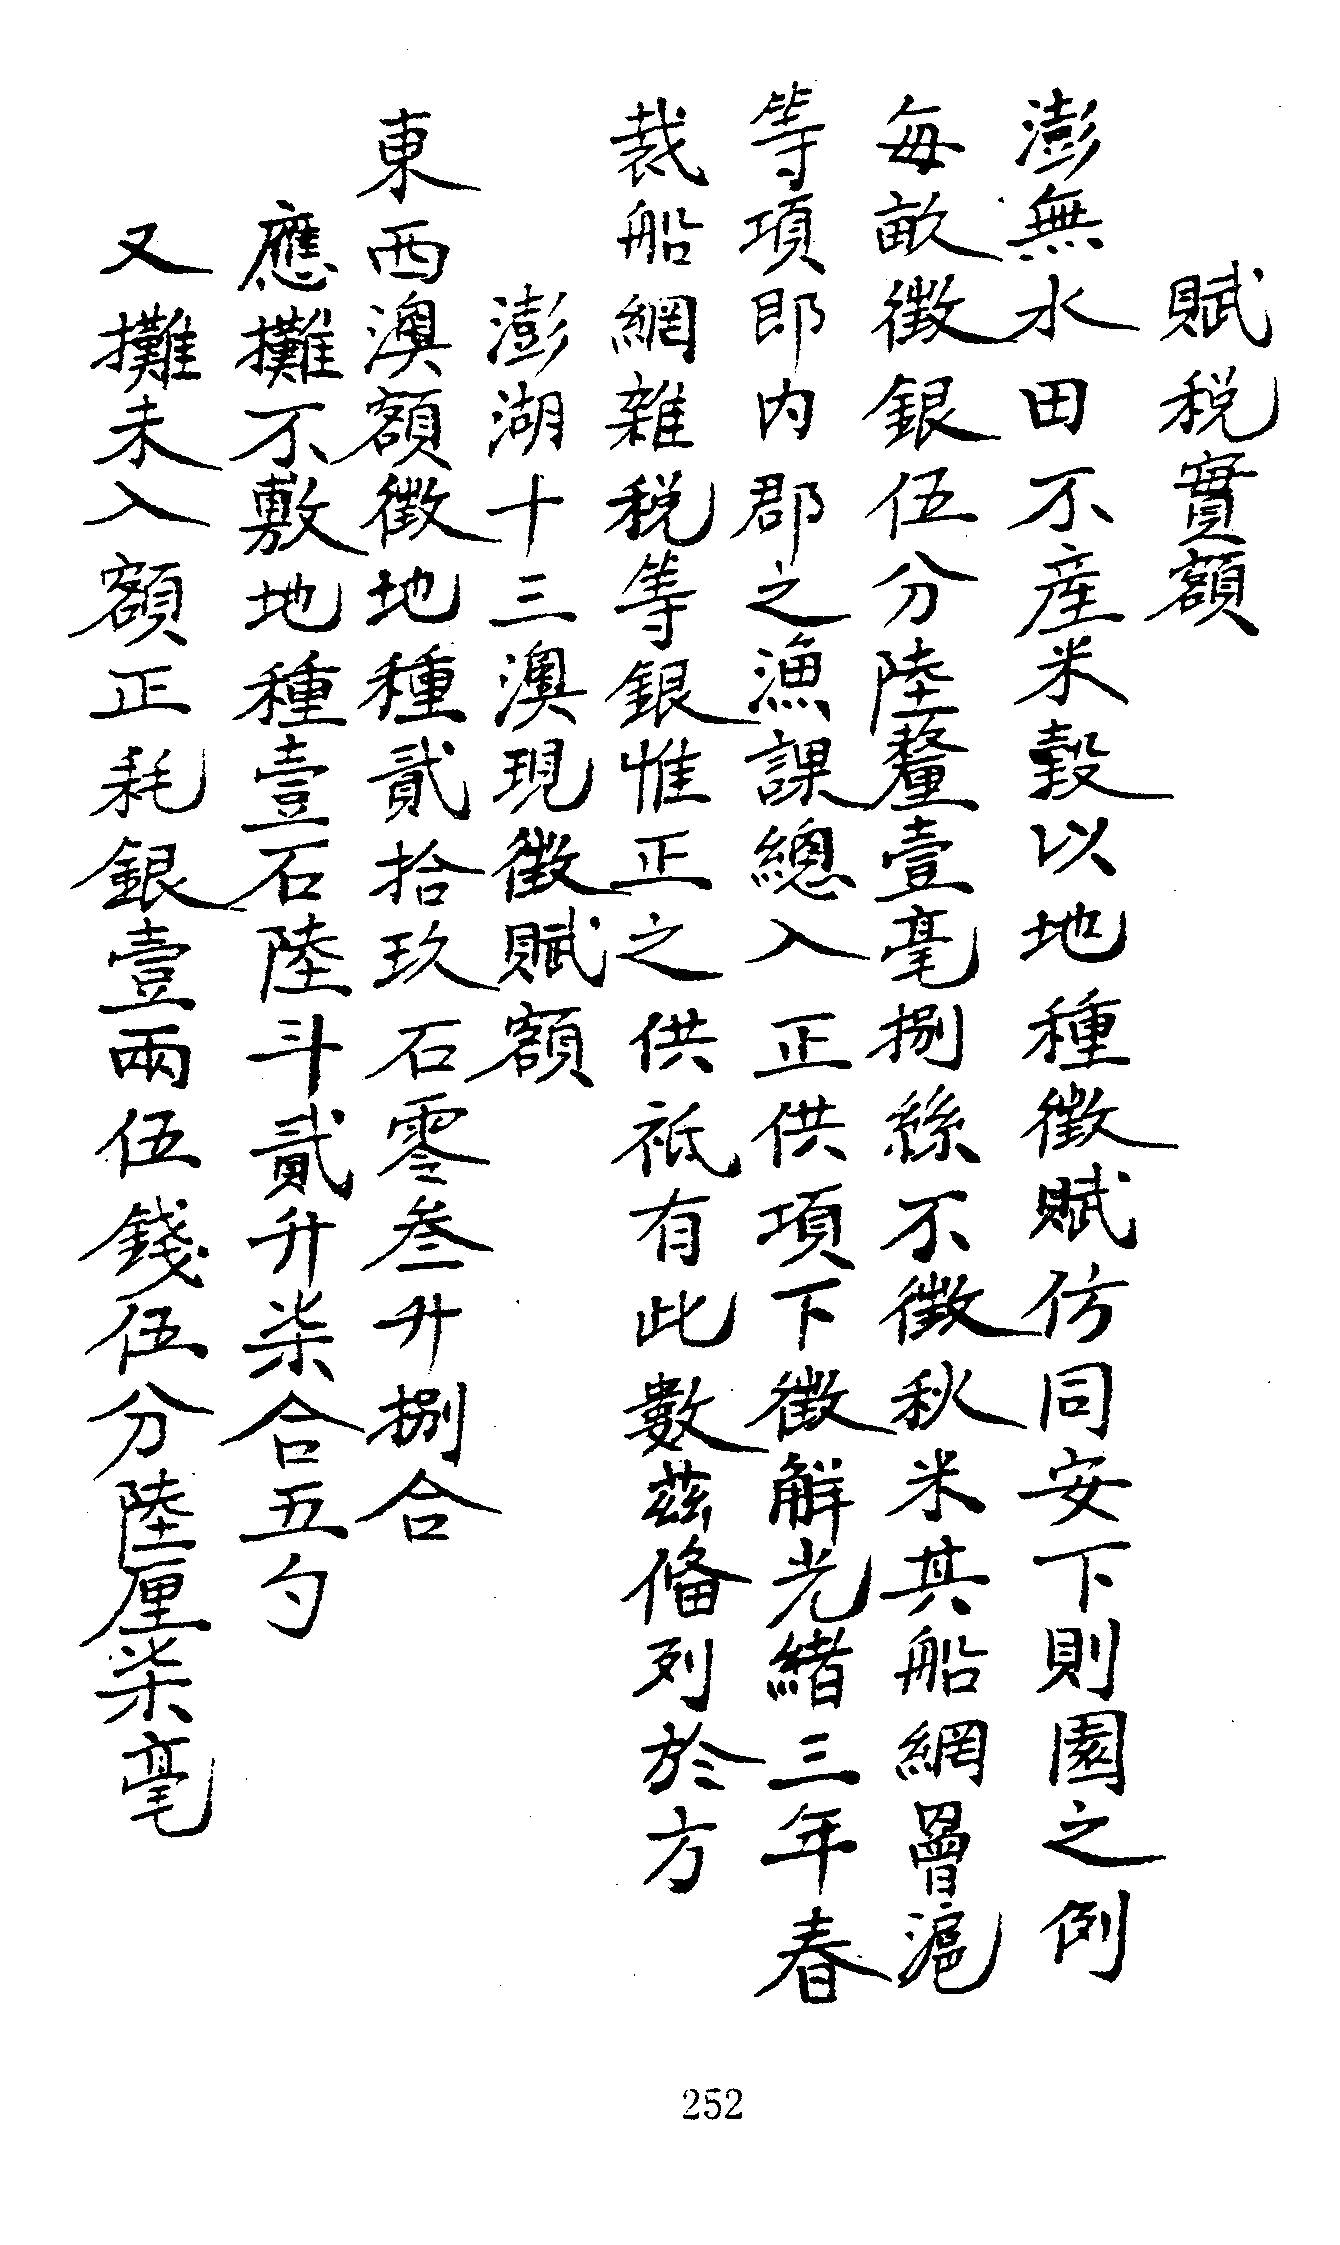 賦税實額
澎無水田不產米穀以地種徵賦仿同安下則園之例
每畝徵銀伍分陸釐壹毫捌絲不徵秋米其船網罾滬
等項即内郡之漁課總入正供項下徵解光緒三年春
裁船網雜税等銀惟正之供祇有此數兹俻列於方
澎湖十三澳現徵賦額
東西澳額徵地種貳拾玖石零叁升捌合
應攤不敷地種壹石陸斗貳升柒合五勺
又攤未入額正耗銀壹兩伍錢伍分陸厘柒毫
252